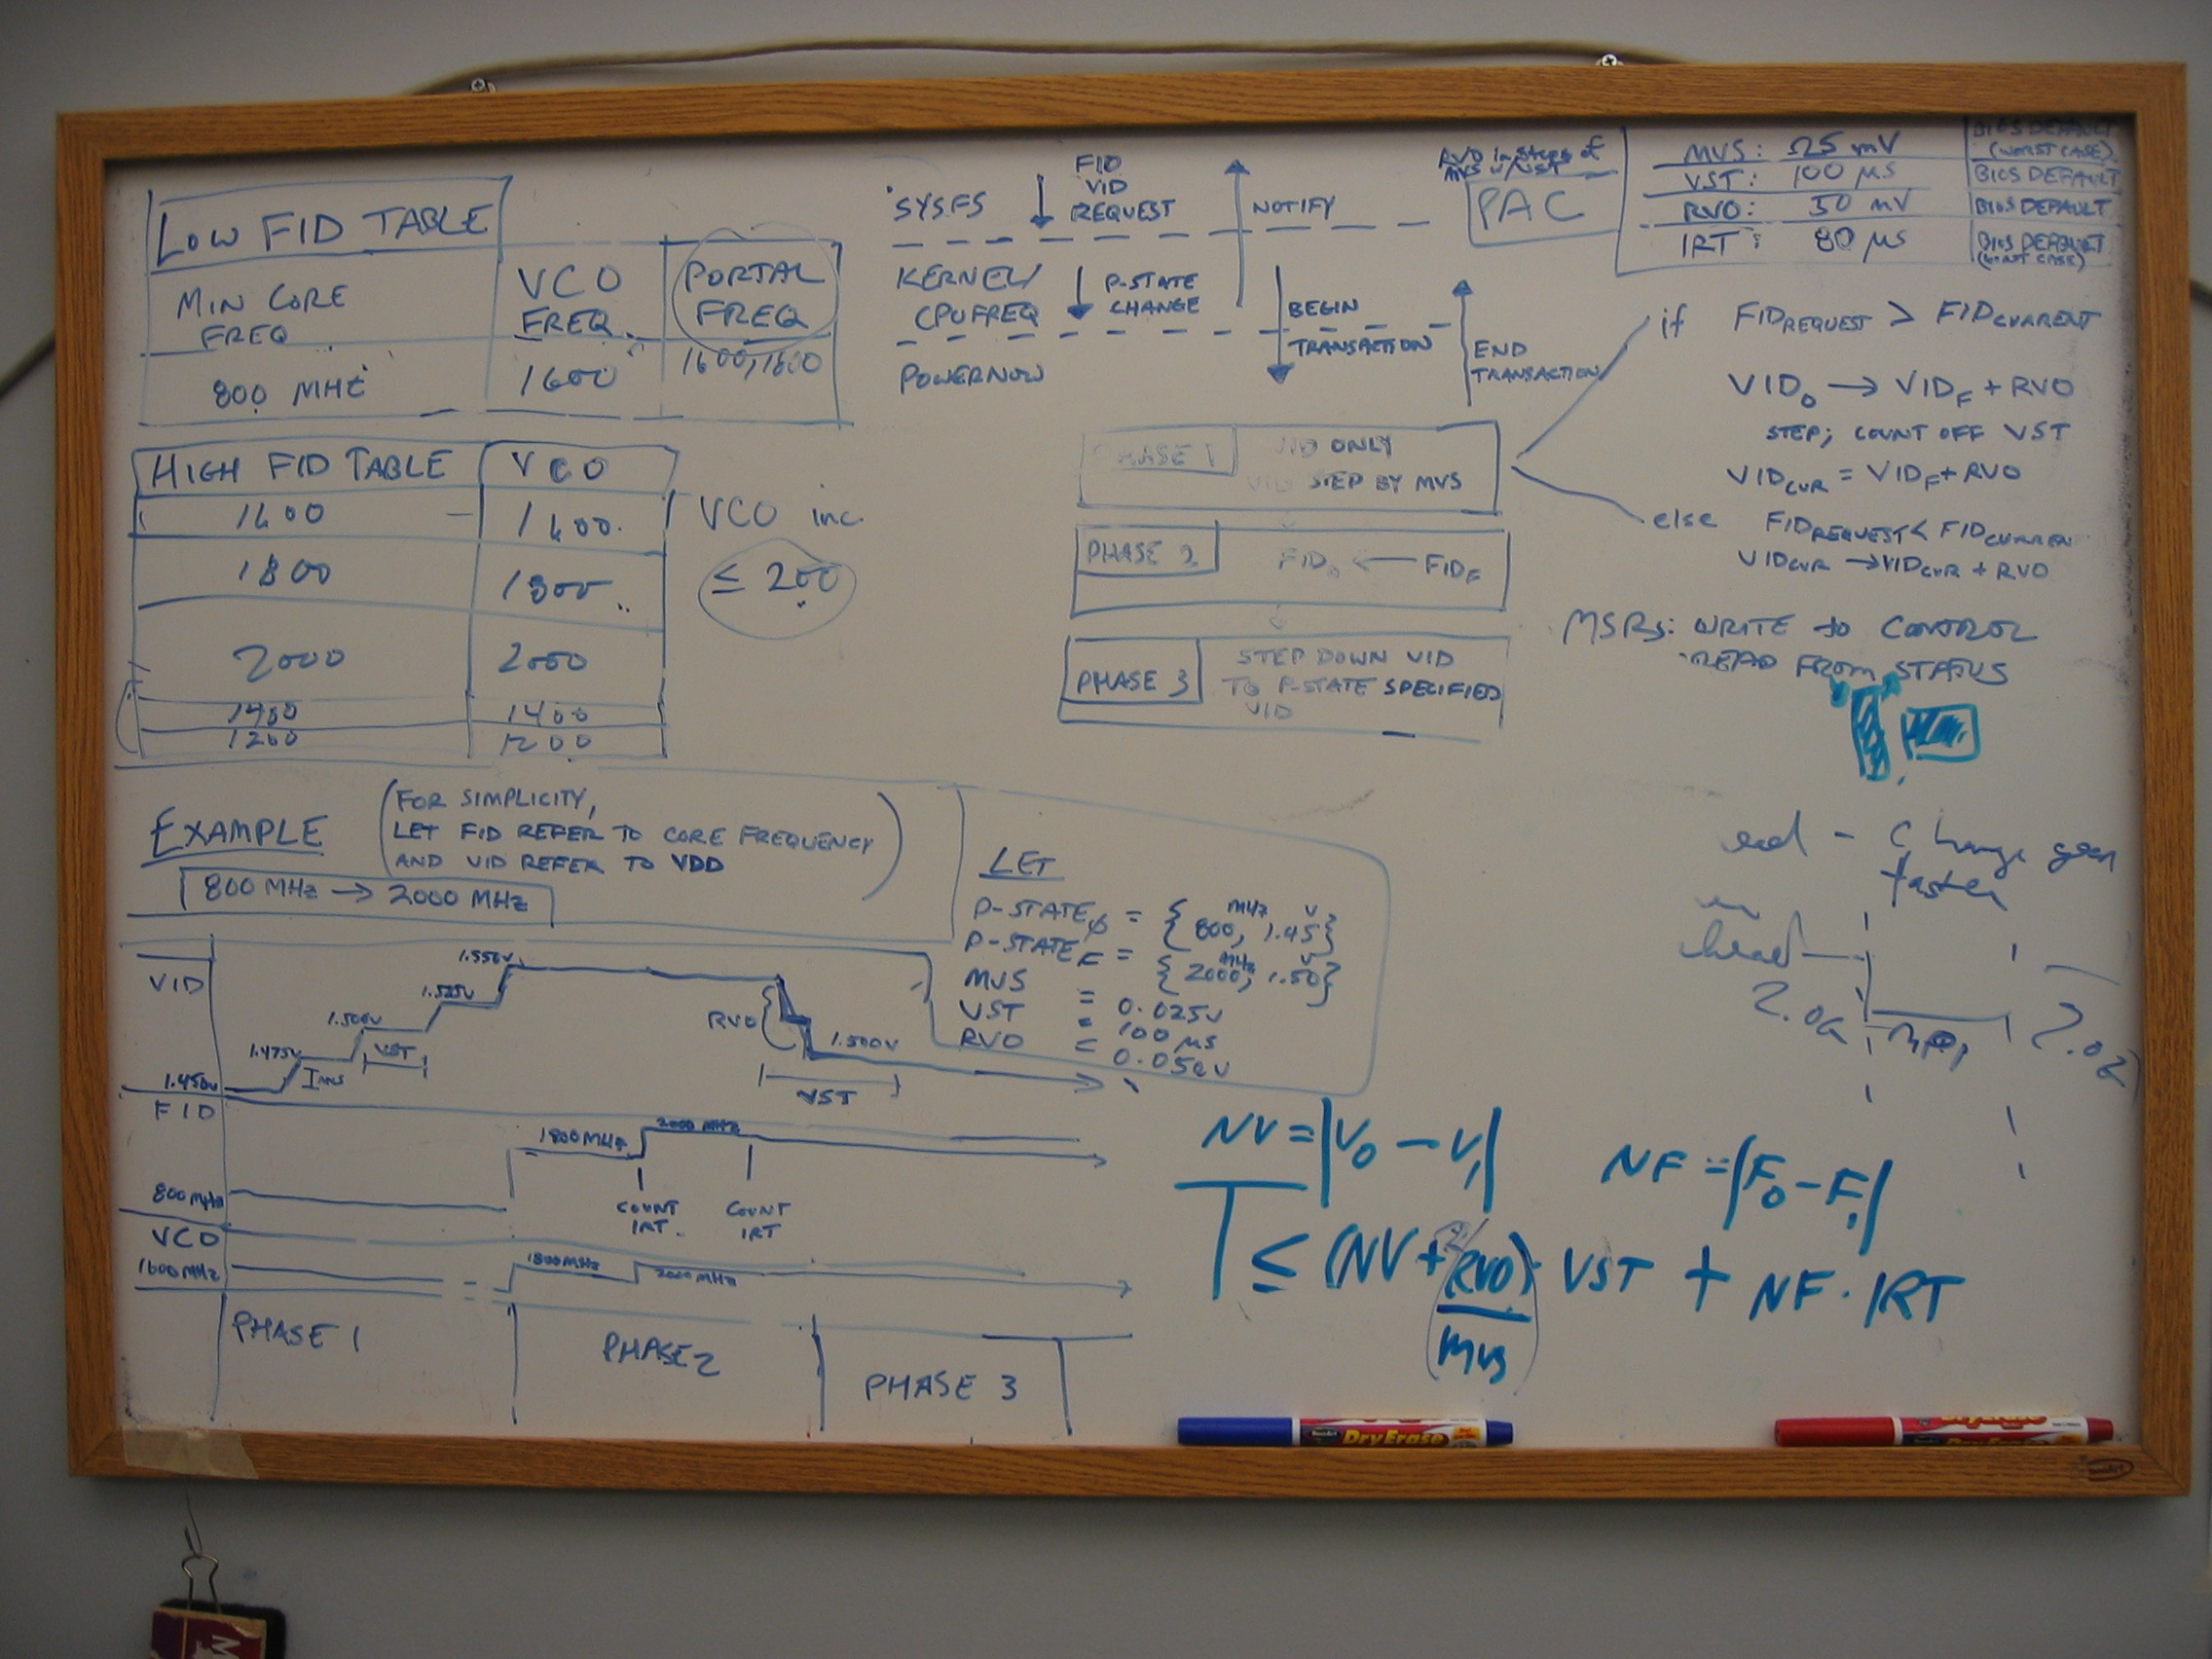 LOW FID TABLE
MIN CORE FREQ
VCO FREQ.
PORTAL FREQ
800 MHZ
1600
1600, 1800
HIGH FID TABLE
VCO
1600
1600
1800
1800
2000
2000
1400
1400
1200
1200
VCO inc.
≤ 200
SYSFS
FID
VID
REQUEST
NOTIFY
KERNEL/
CPUFREQ
P-STATE
CHANGE
BEGIN
TRANSACTION
END
TRANSACTION
POWERNOW
RVO in steps of
MVS w/VST
PAC
MVS: 25 mV
BIOS DEFAULT
(WORST CASE)
VST: 100 μs
BIOS DEFAULT
RVO: 50 mV
BIOS DEFAULT
IRT: 80 μs
BIOS DEFAULT
PHASE 1
VID ONLY
VID STEP BY MVS
PHASE 2
FID₀ ← FID_F
PHASE 3
STEP DOWN VID
TO P-STATE SPECIFIED
VID
if FID_REQUEST > FID_CURRENT
VID₀ → VID_F + RVO
STEP; COUNT OFF VST
VID_CUR = VID_F + RVO
else FID_REQUEST < FID_CURREN
VID_CUR → VID_CUR + RVO
MSRs: WRITE to CONTROL
READ FROM STATUS
EXAMPLE
(FOR SIMPLICITY,
LET FID REFER TO CORE FREQUENCY
AND VID REFER TO VDD)
800 MHz → 2000 MHz
LET
P-STATE_φ = {800 MHz, 1.45 V}
P-STATE_F = {2000 MHz, 1.50 V}
MVS = 0.025V
VST = 100 μs
RVO = 0.050V
VID
1.450V
1.475V
1.500V
1.525V
1.550V
VST
RVO
1.500V
VST
FID
800 MHz
1800 MHz
2000 MHz
COUNT
IRT
COUNT
IRT
VCO
1600 MHz
1800 MHz
2000 MHz
PHASE 1
PHASE 2
PHASE 3
Change
faster
head
NV = |V₀ - V₁|
NF = |F₀ - F₁|
T ≤ (NV + 2/RVO/MVS) · VST + NF · IRT
DryErase
DryErase